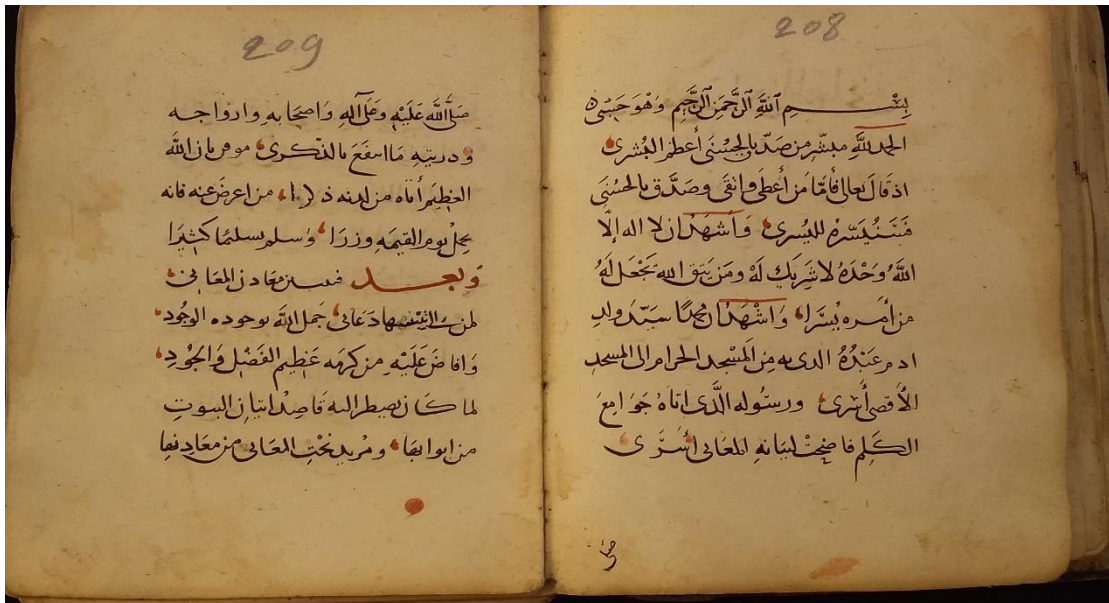 208
بسم الله الرحمن الرحيم وهو حسبي
الحمد لله مبشر من صدق بالحسنى أعظم البشرى
اذ قال تعالى فأما من أعطى واتقى وصدق بالحسنى
فسنيسره لليسرى وأشهد ان لا اله إلا
الله وحده لا شريك له ومن يتق الله يجعل له
من أمره يسرا وأشهد ان محمدا سيد ولد
ادم عبده الذى به من المسجد الحرام الى المسجد
الأقصى أسرى ورسوله الذى اتاه جوامع
الكلم فاضحت لبيانه المعانى أسرى
صلى
209
صلى الله عليه وعلى آله واصحابه وازواجه
وذريته ما انتفع بالذكرى مومن بان الله
العظيم أتاه من لدنه ذكرا من اعرض عنه فانه
يحمل يوم القيمه وزرا وسلم تسليما كثيرا
وبعد معادن المعانى
لمن دعانى جمل الله بوجوده الوجود
وافاض عليه من كرمه عظيم الفضل والجود
لما كان يضطر اليه قاصد اتيان البيوت
من ابوابها ومريد نحت المعانى من معادنها